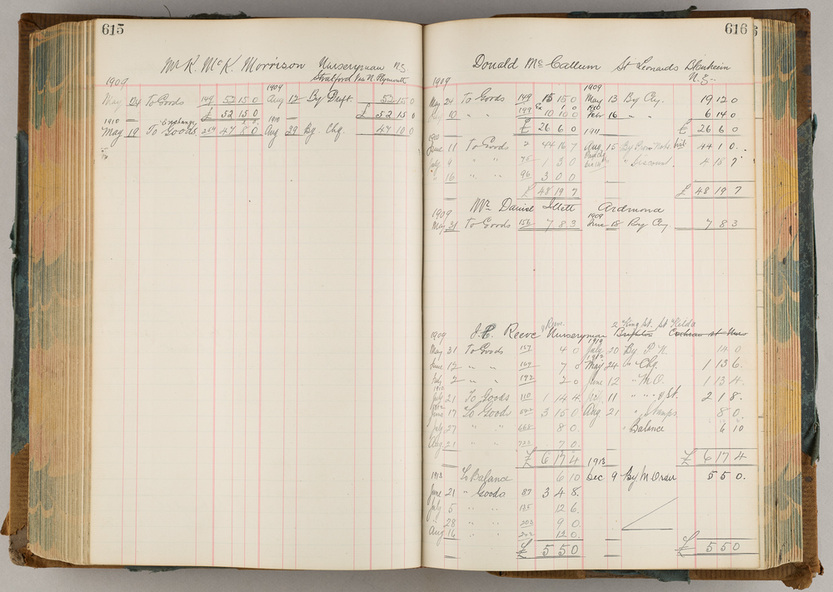 615
Mr R. McK. Morrison Nurseryman N.Z.
Stratford New N. Plymouth
1909 1909
May 24 To Goods 149 52 15 0 Aug 12 By Dft. 52 15 0
£ 52 15 0 £ 52 15 0
1910 Exchange 1910
May 19 To Goods 47 Aug 29 By Chq. 47 10 0
616
Donald McCallum St Leonards Blenheim
N.Z.
1909 1909
May 24 To Goods 149 15 15 0 May 13 By Cq. 19 12 0
10 " " 10 10 0 1910 16 " " 6 14 0
£ 26 6 0 £ 26 6 0
1911
June 11 To Goods 44 16 7 Aug 15 By 44 1 0
9 " " 75 1 3 0 " Discount 4 18 7
16 96 3 0 0
£ 48 19 7 £ 48 19 7
1909 Mr Daniel Ardmona
1909
May 31 To Goods 156 7 8 3 June 18 By Cq 7 8 3
King St. St Kilda
1909 J. C. Reeve Nurseryman Brighton
May 31 To Goods 157 4 0 July 20 By P.N. 14 0
June 12 " " 7 0 May 24 " Chq. 1 13 6
July 2 " " 192 2 0 June 12 " M.O. 1 13 4
July 21 To Goods 110 1 14 4 11 " " & St. 2 1 8
June 17 To Goods 3 15 0 Aug 21 " Stamps 8 0
July 27 " " 8 0 " Balance 6 10
Aug 21 " " 7 0
£ 6 17 4 £ 6 17 4
1912 1913
To Balance 6 10 Dec 9 By M Order 5 5 0
June 21 " Goods 87 3 4 8
July 5 " " 125 12 6
" 28 " " 202 9 0
Aug 16 " " 12 0
£ 5 5 0 £ 5 5 0